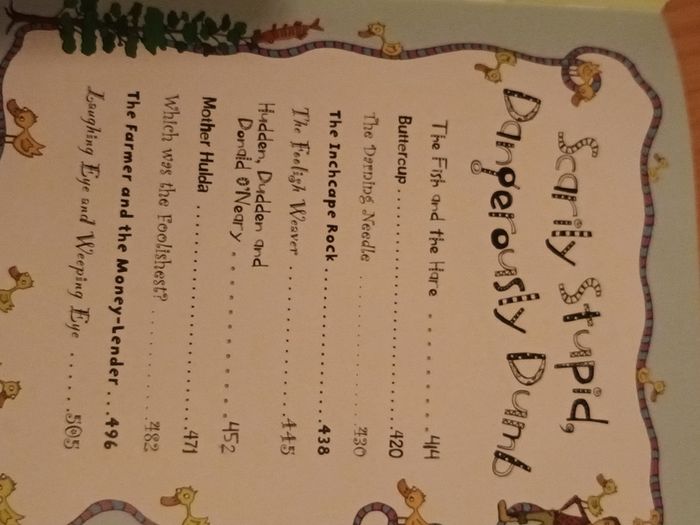 Scarily Stupid,
Dangerously Dumb
The Fish and the Hare . . . . . . . . . 414
Buttercup . . . . . . . . . . . . . . . . . . . . . . . 420
The Darning Needle . . . . . . . . . . . . . 430
The Inchcape Rock . . . . . . . . . . . . . . . 438
The Foolish Weaver . . . . . . . . . . . . . . 445
Hudden, Dudden and
Donald O'Neary . . . . . . . . . . . . . 452
Mother Hulda . . . . . . . . . . . . . . . . . . . . 471
Which was the Foolishest? . . . . . . . . 482
The Farmer and the Money-Lender . . . 496
Laughing Eye and Weeping Eye . . . . . . 505